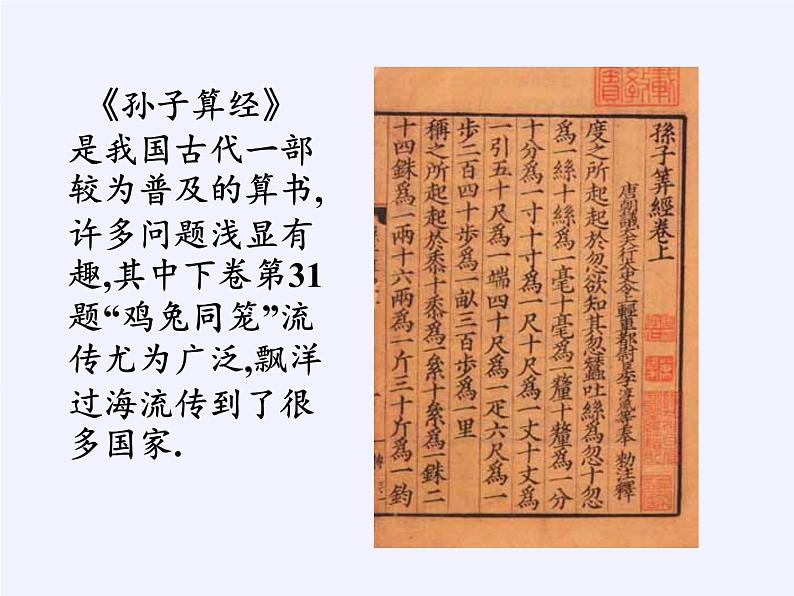 《孙子算经》
是我国古代一部
较为普及的算书,
许多问题浅显有
趣,其中下卷第31
题“鸡兔同笼”流
传尤为广泛,飘洋
过海流传到了很
多国家.
孫子筭經卷上
唐朝議大夫行太史令上輕車都尉臣李淳風等奉 勑注釋
度之所起起於忽欲知其忽蠶吐絲爲忽十忽
爲一絲十絲爲一毫十毫爲一釐十釐爲一分
十分爲一寸十寸爲一尺十尺爲一丈十丈爲
一引五十尺爲一端四十尺爲一疋六尺爲一
歩二百四十歩爲一畝三百歩爲一里
稱之所起起於黍十黍爲一絫十絫爲一銖二
十四銖爲一兩十六兩爲一斤三十斤爲一鈞